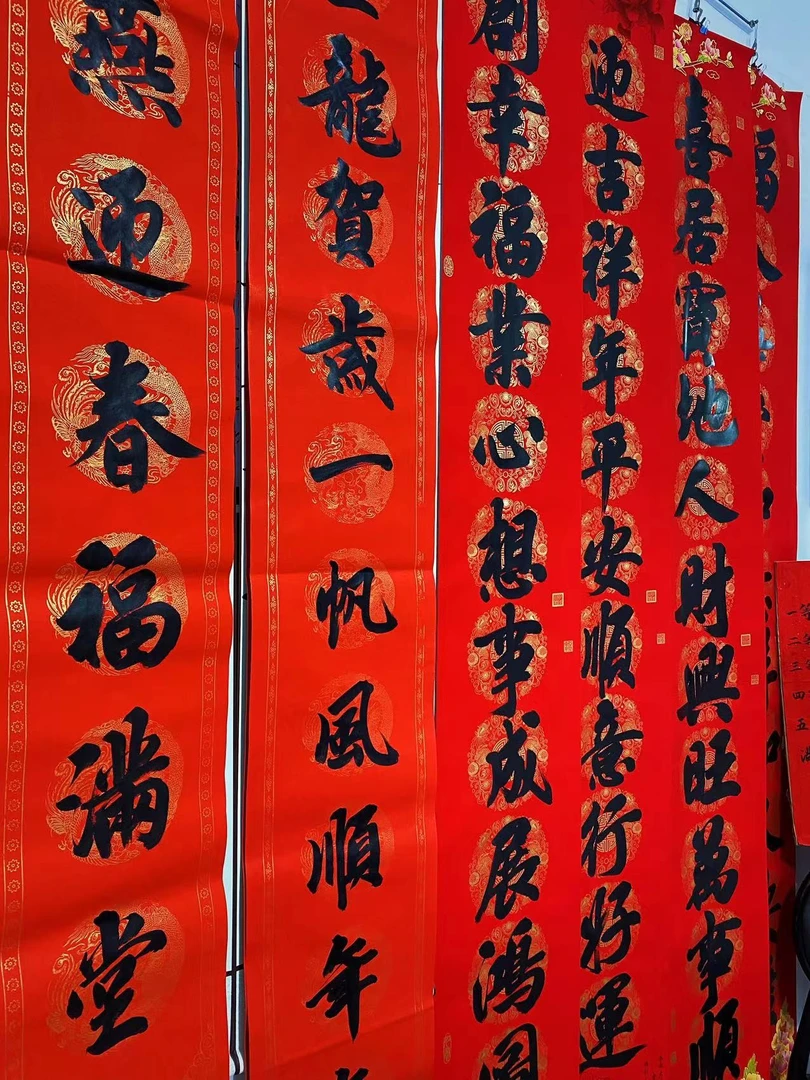 二三四五
福
喜居寶地人財興旺萬事順
迎吉祥年平安順意行好運
創幸福業心想事成展鴻圖
龍賀歲一帆風順年
燕迎春福滿堂